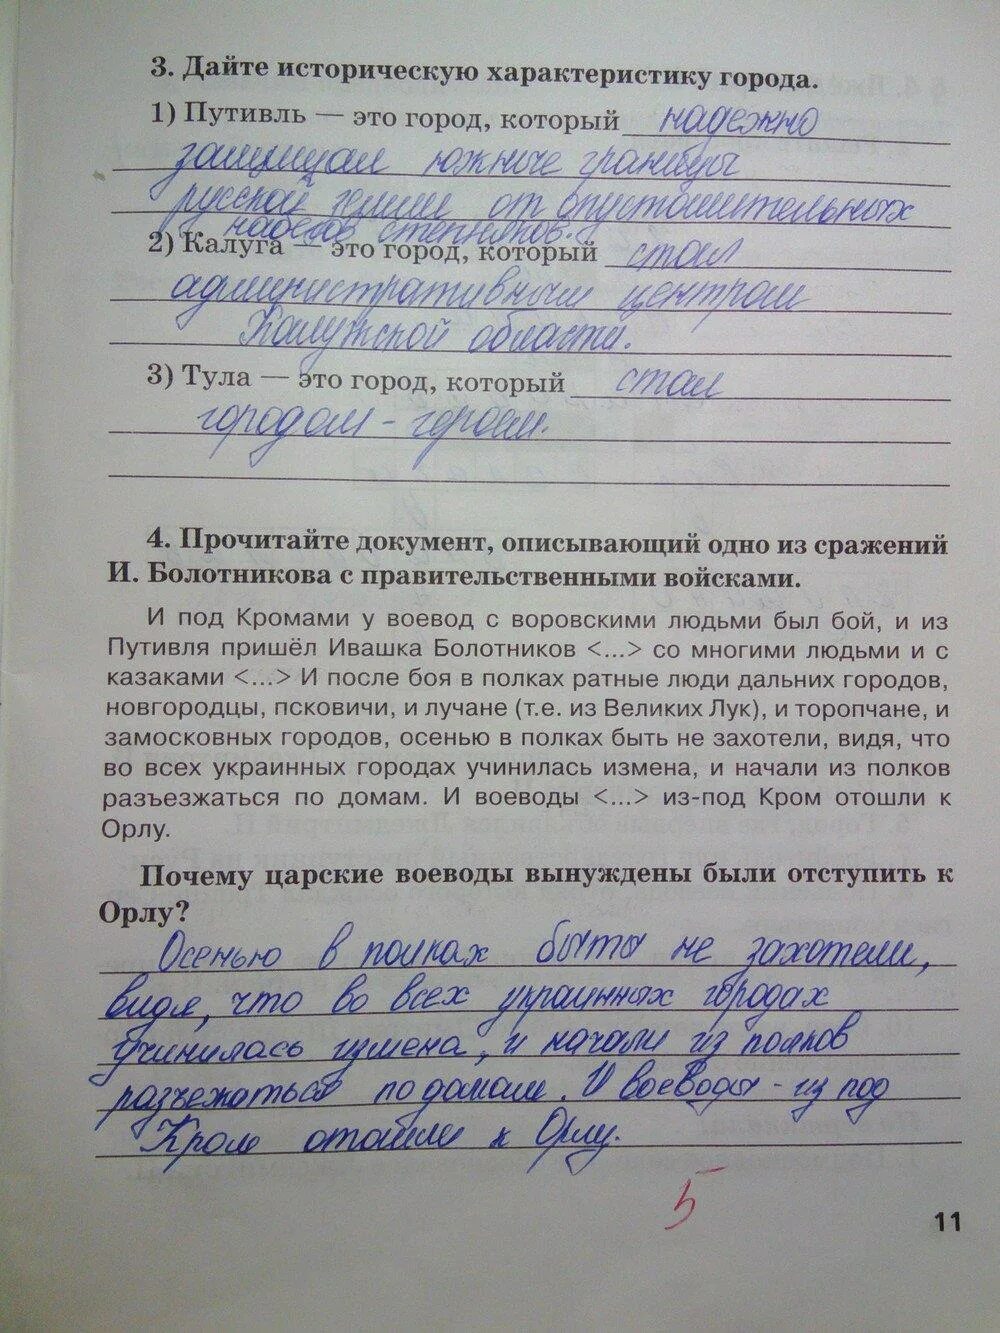 3. Дайте историческую характеристику города.
1) Путивль — это город, который надежно
защищал южные границы
русской земли от опустошительных
набегов степняков.
2) Калуга — это город, который стал
административным центром
Калужской области.
3) Тула — это город, который стал
городом - героем.
4. Прочитайте документ, описывающий одно из сражений
И. Болотникова с правительственными войсками.
И под Кромами у воевод с воровскими людьми был бой, и из
Путивля пришёл Ивашка Болотников <...> со многими людьми и с
казаками <...> И после боя в полках ратные люди дальних городов,
новгородцы, псковичи, и лучане (т.е. из Великих Лук), и торопчане, и
замосковных городов, осенью в полках быть не захотели, видя, что
во всех украинных городах учинилась измена, и начали из полков
разъезжаться по домам. И воеводы <...> из-под Кром отошли к
Орлу.
Почему царские воеводы вынуждены были отступить к
Орлу?
Осенью в полках быть не захотели,
видя, что во всех украинных городах
учинилась измена, и начали из полков
разъежаться по домам. И воеводы - из под
Кром отошли к Орлу.
5
11